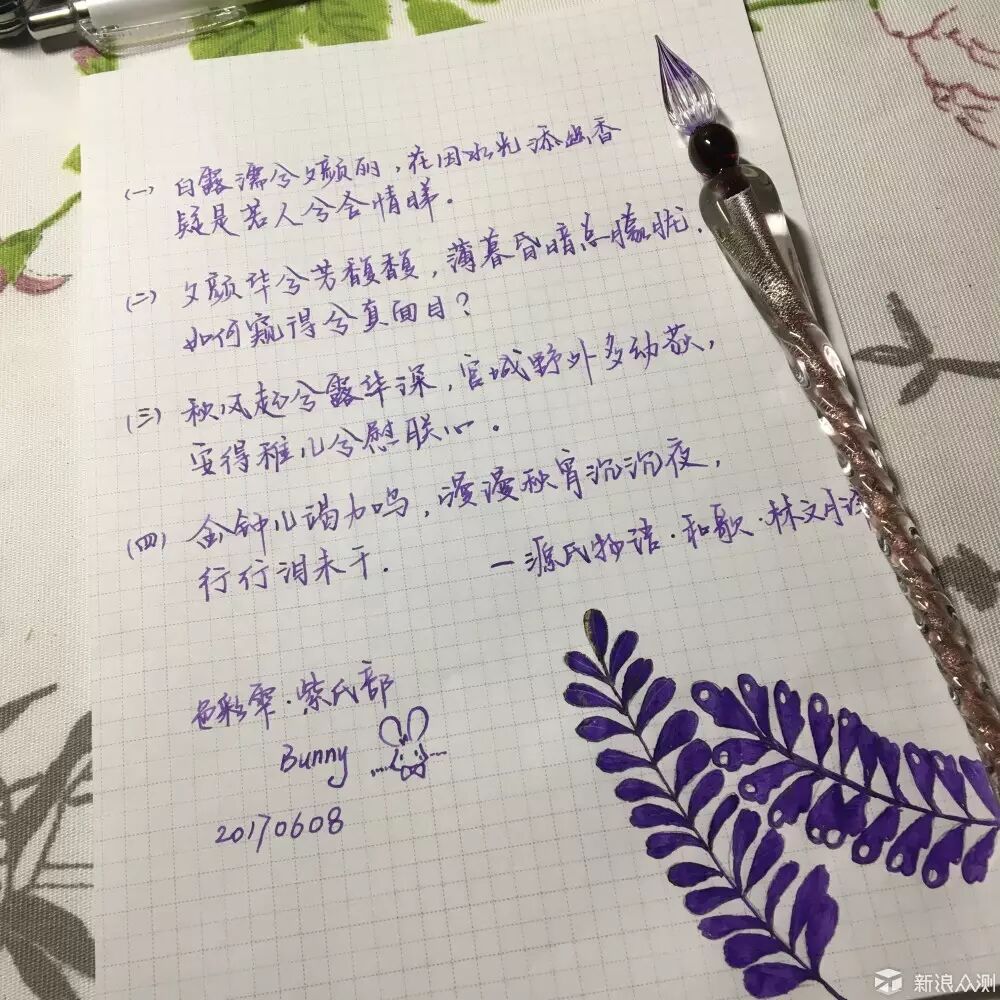 (一) 白露濡兮夕颜丽,花因水光添幽香
疑是若人兮含情睇.
(二) 夕颜华兮芳馥馥,薄暮昏暗总朦胧.
如何窥得兮真面目?
(三) 秋风起兮露华深,宫城野外多动荻,
安得稚儿兮慰朕心.
(四) 金钟儿竭力鸣,漫漫秋宵沉沉夜,
行行泪未干.
—源氏物语·和歌·林文月译
色彩雫·紫氏部
Bunny
20170608
新浪众测